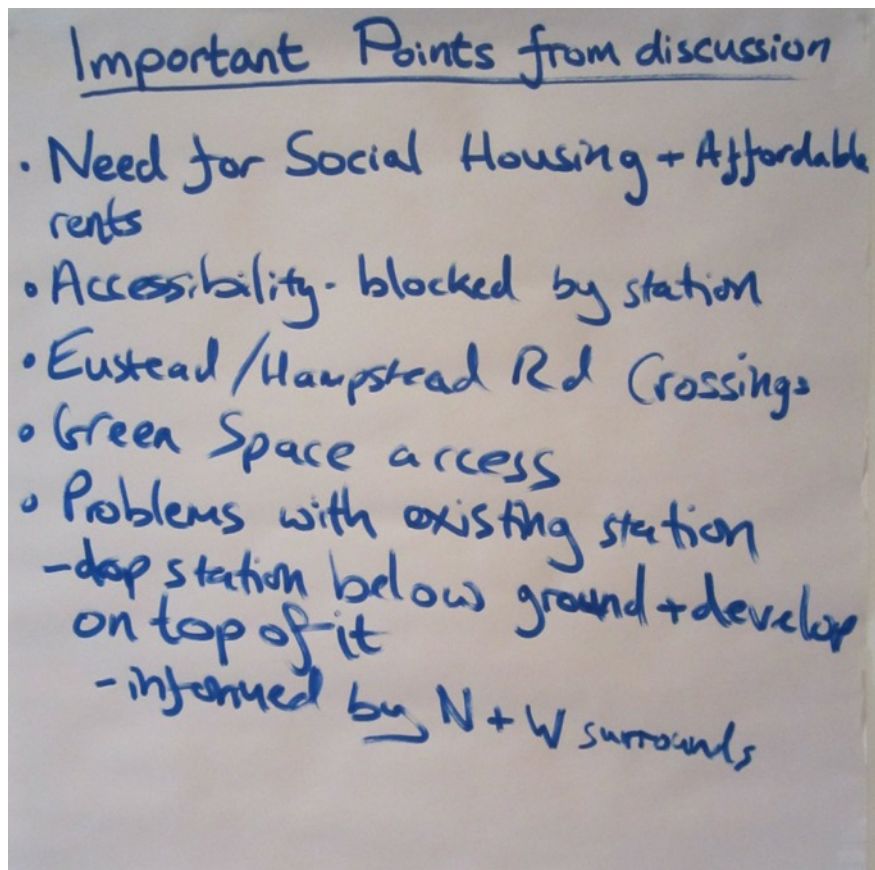 Important Points from discussion
• Need for Social Housing + Affordable
rents
• Accessibility - blocked by station
• Eustead / Hampstead Rd Crossings
• Green Space access
• Problems with existing station
- drop station below ground + develop
on top of it
- informed by N + W surrounds